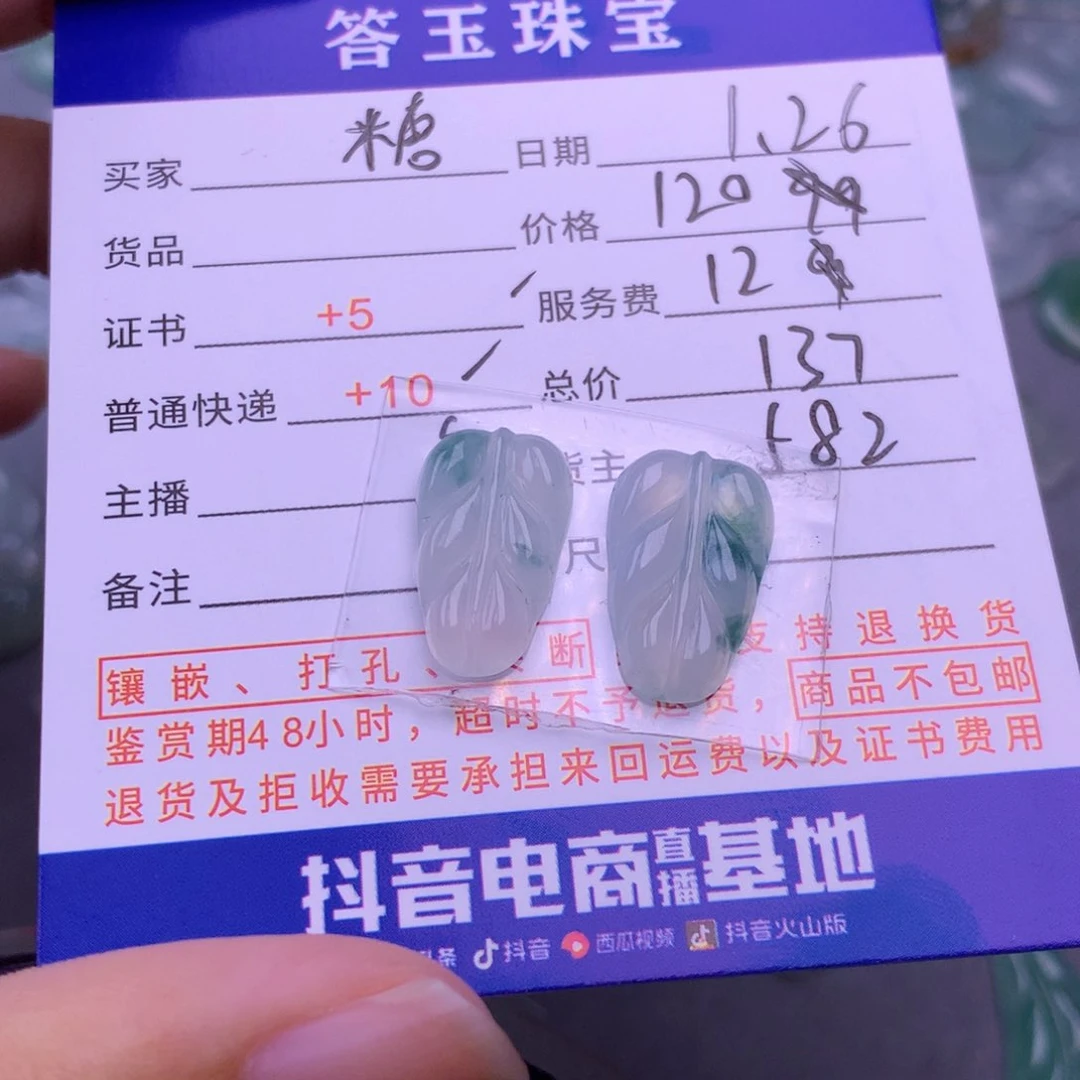 答玉珠宝
买家 糖 日期 1.26
货品 价格 120
证书 +5 服务费 12
普通快递 +10 总价 137
主播 货主 582
备注 尺
镶嵌、打孔、 断 支持退换货
鉴赏期48小时，超时不予退货，商品不包邮
退货及拒收需要承担来回运费以及证书费用
抖音电商直播基地
条 抖音 西瓜视频 抖音火山版